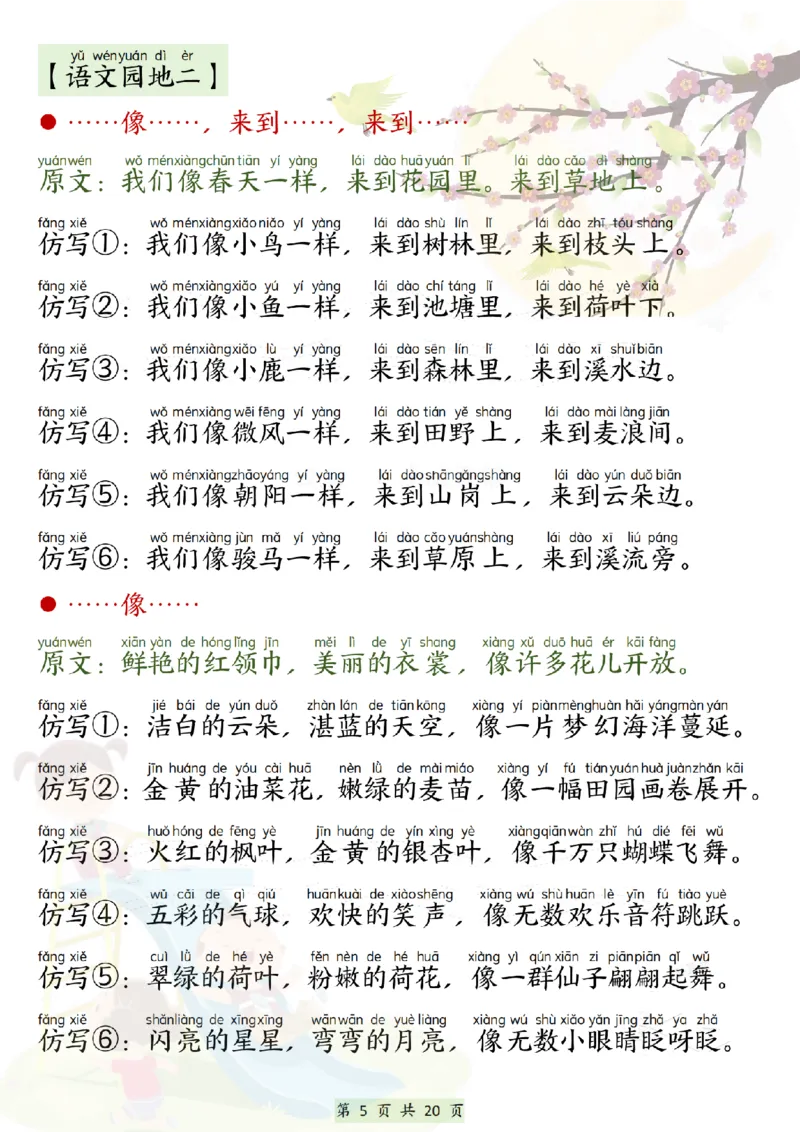 yǔ wén yuán dì èr
【语文园地二】
●……像……，来到……，来到……
yuán wén wǒ men xiàng chūn tiān yí yàng lái dào huā yuán lǐ lái dào cǎo dì shàng
原文：我们像春天一样，来到花园里。来到草地上。
fǎng xiě wǒ men xiàng xiǎo niǎo yí yàng lái dào shù lín lǐ lái dào zhī tóu shàng
仿写①：我们像小鸟一样，来到树林里，来到枝头上。
fǎng xiě wǒ men xiàng xiǎo yú yí yàng lái dào chí táng lǐ lái dào hé yè xià
仿写②：我们像小鱼一样，来到池塘里，来到荷叶下。
fǎng xiě wǒ men xiàng xiǎo lù yí yàng lái dào sēn lín lǐ lái dào xī shuǐ biān
仿写③：我们像小鹿一样，来到森林里，来到溪水边。
fǎng xiě wǒ men xiàng wēi fēng yí yàng lái dào tián yě shàng lái dào mài làng jiān
仿写④：我们像微风一样，来到田野上，来到麦浪间。
fǎng xiě wǒ men xiàng zhāo yáng yí yàng lái dào shān gǎng shàng lái dào yún duǒ biān
仿写⑤：我们像朝阳一样，来到山岗上，来到云朵边。
fǎng xiě wǒ men xiàng jùn mǎ yí yàng lái dào cǎo yuán shàng lái dào xī liú páng
仿写⑥：我们像骏马一样，来到草原上，来到溪流旁。
●……像……
yuán wén xiān yàn de hóng lǐng jīn měi lì de yī shang xiàng xǔ duō huā ér kāi fàng
原文：鲜艳的红领巾，美丽的衣裳，像许多花儿开放。
fǎng xiě jié bái de yún duǒ zhàn lán de tiān kōng xiàng yí piàn mèng huàn hǎi yáng màn yán
仿写①：洁白的云朵，湛蓝的天空，像一片梦幻海洋蔓延。
fǎng xiě jīn huáng de yóu cài huā nèn lǜ de mài miáo xiàng yí fú tián yuán huà juàn zhǎn kāi
仿写②：金黄的油菜花，嫩绿的麦苗，像一幅田园画卷展开。
fǎng xiě huǒ hóng de fēng yè jīn huáng de yín xìng yè xiàng qiān wàn zhǐ hú dié fēi wǔ
仿写③：火红的枫叶，金黄的银杏叶，像千万只蝴蝶飞舞。
fǎng xiě wǔ cǎi de qì qiú huān kuài de xiào shēng xiàng wú shù huān lè yīn fú tiào yuè
仿写④：五彩的气球，欢快的笑声，像无数欢乐音符跳跃。
fǎng xiě cuì lǜ de hé yè fěn nèn de hé huā xiàng yì qún xiān zi piān piān qǐ wǔ
仿写⑤：翠绿的荷叶，粉嫩的荷花，像一群仙子翩翩起舞。
fǎng xiě shǎn liàng de xīng xīng wān wān de yuè liàng xiàng wú shù xiǎo yǎn jīng zhǎ ya zhǎ
仿写⑥：闪亮的星星，弯弯的月亮，像无数小眼睛眨呀眨。
第 5 页 共 20 页